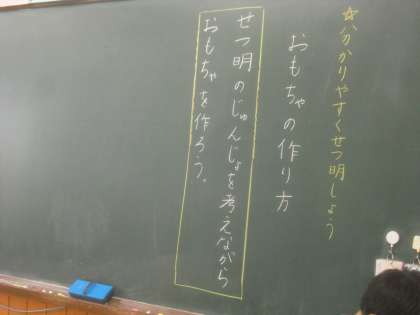 ☆分かりやすくせつ明しよう
おもちゃの作り方
せつ明のじゅんじょを考えながら
おもちゃを作ろう。